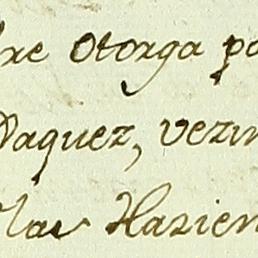 otorga
Vaquez, vezin
Las Hazien